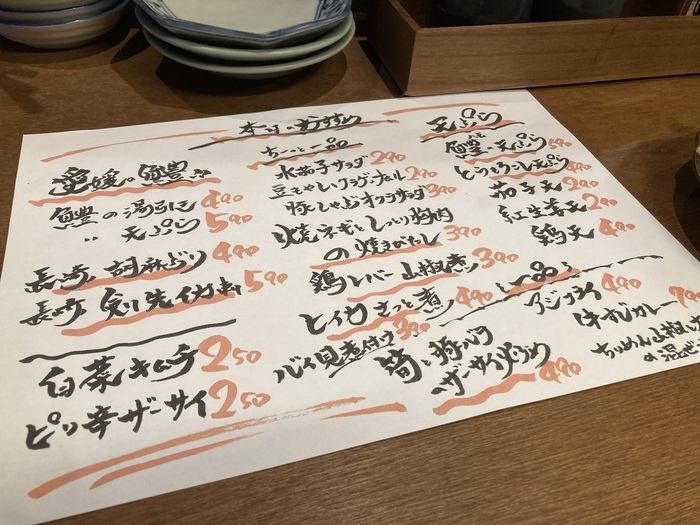 本日のおすすめ
愛媛の鱧
鱧の湯引き 490
〃 天ぷら 590
長崎 胡麻ぶり 490
長崎 剣先イカ刺 590
白菜キムチ 250
ピリ辛ザーサイ 250
ちょっと一品
水茄子サラダ 290
豆もやしの
豚しゃぶオクラサラダ 390
焼ネギとしっとり鶏肉
の焼きびたし 390
鶏レバー山椒煮 390
ヒイカさっと煮 490
バイ貝煮付け 390
天ぷら
鱧の天ぷら 590
とうもろこし天ぷら 490
茄子天 290
紅生姜天 290
鶏天 490
一品
アジフライ 490
牛すじカレー 790
ちりめん山椒と
の混ぜ
筍と豚バラ
のザーサイ炒め 490